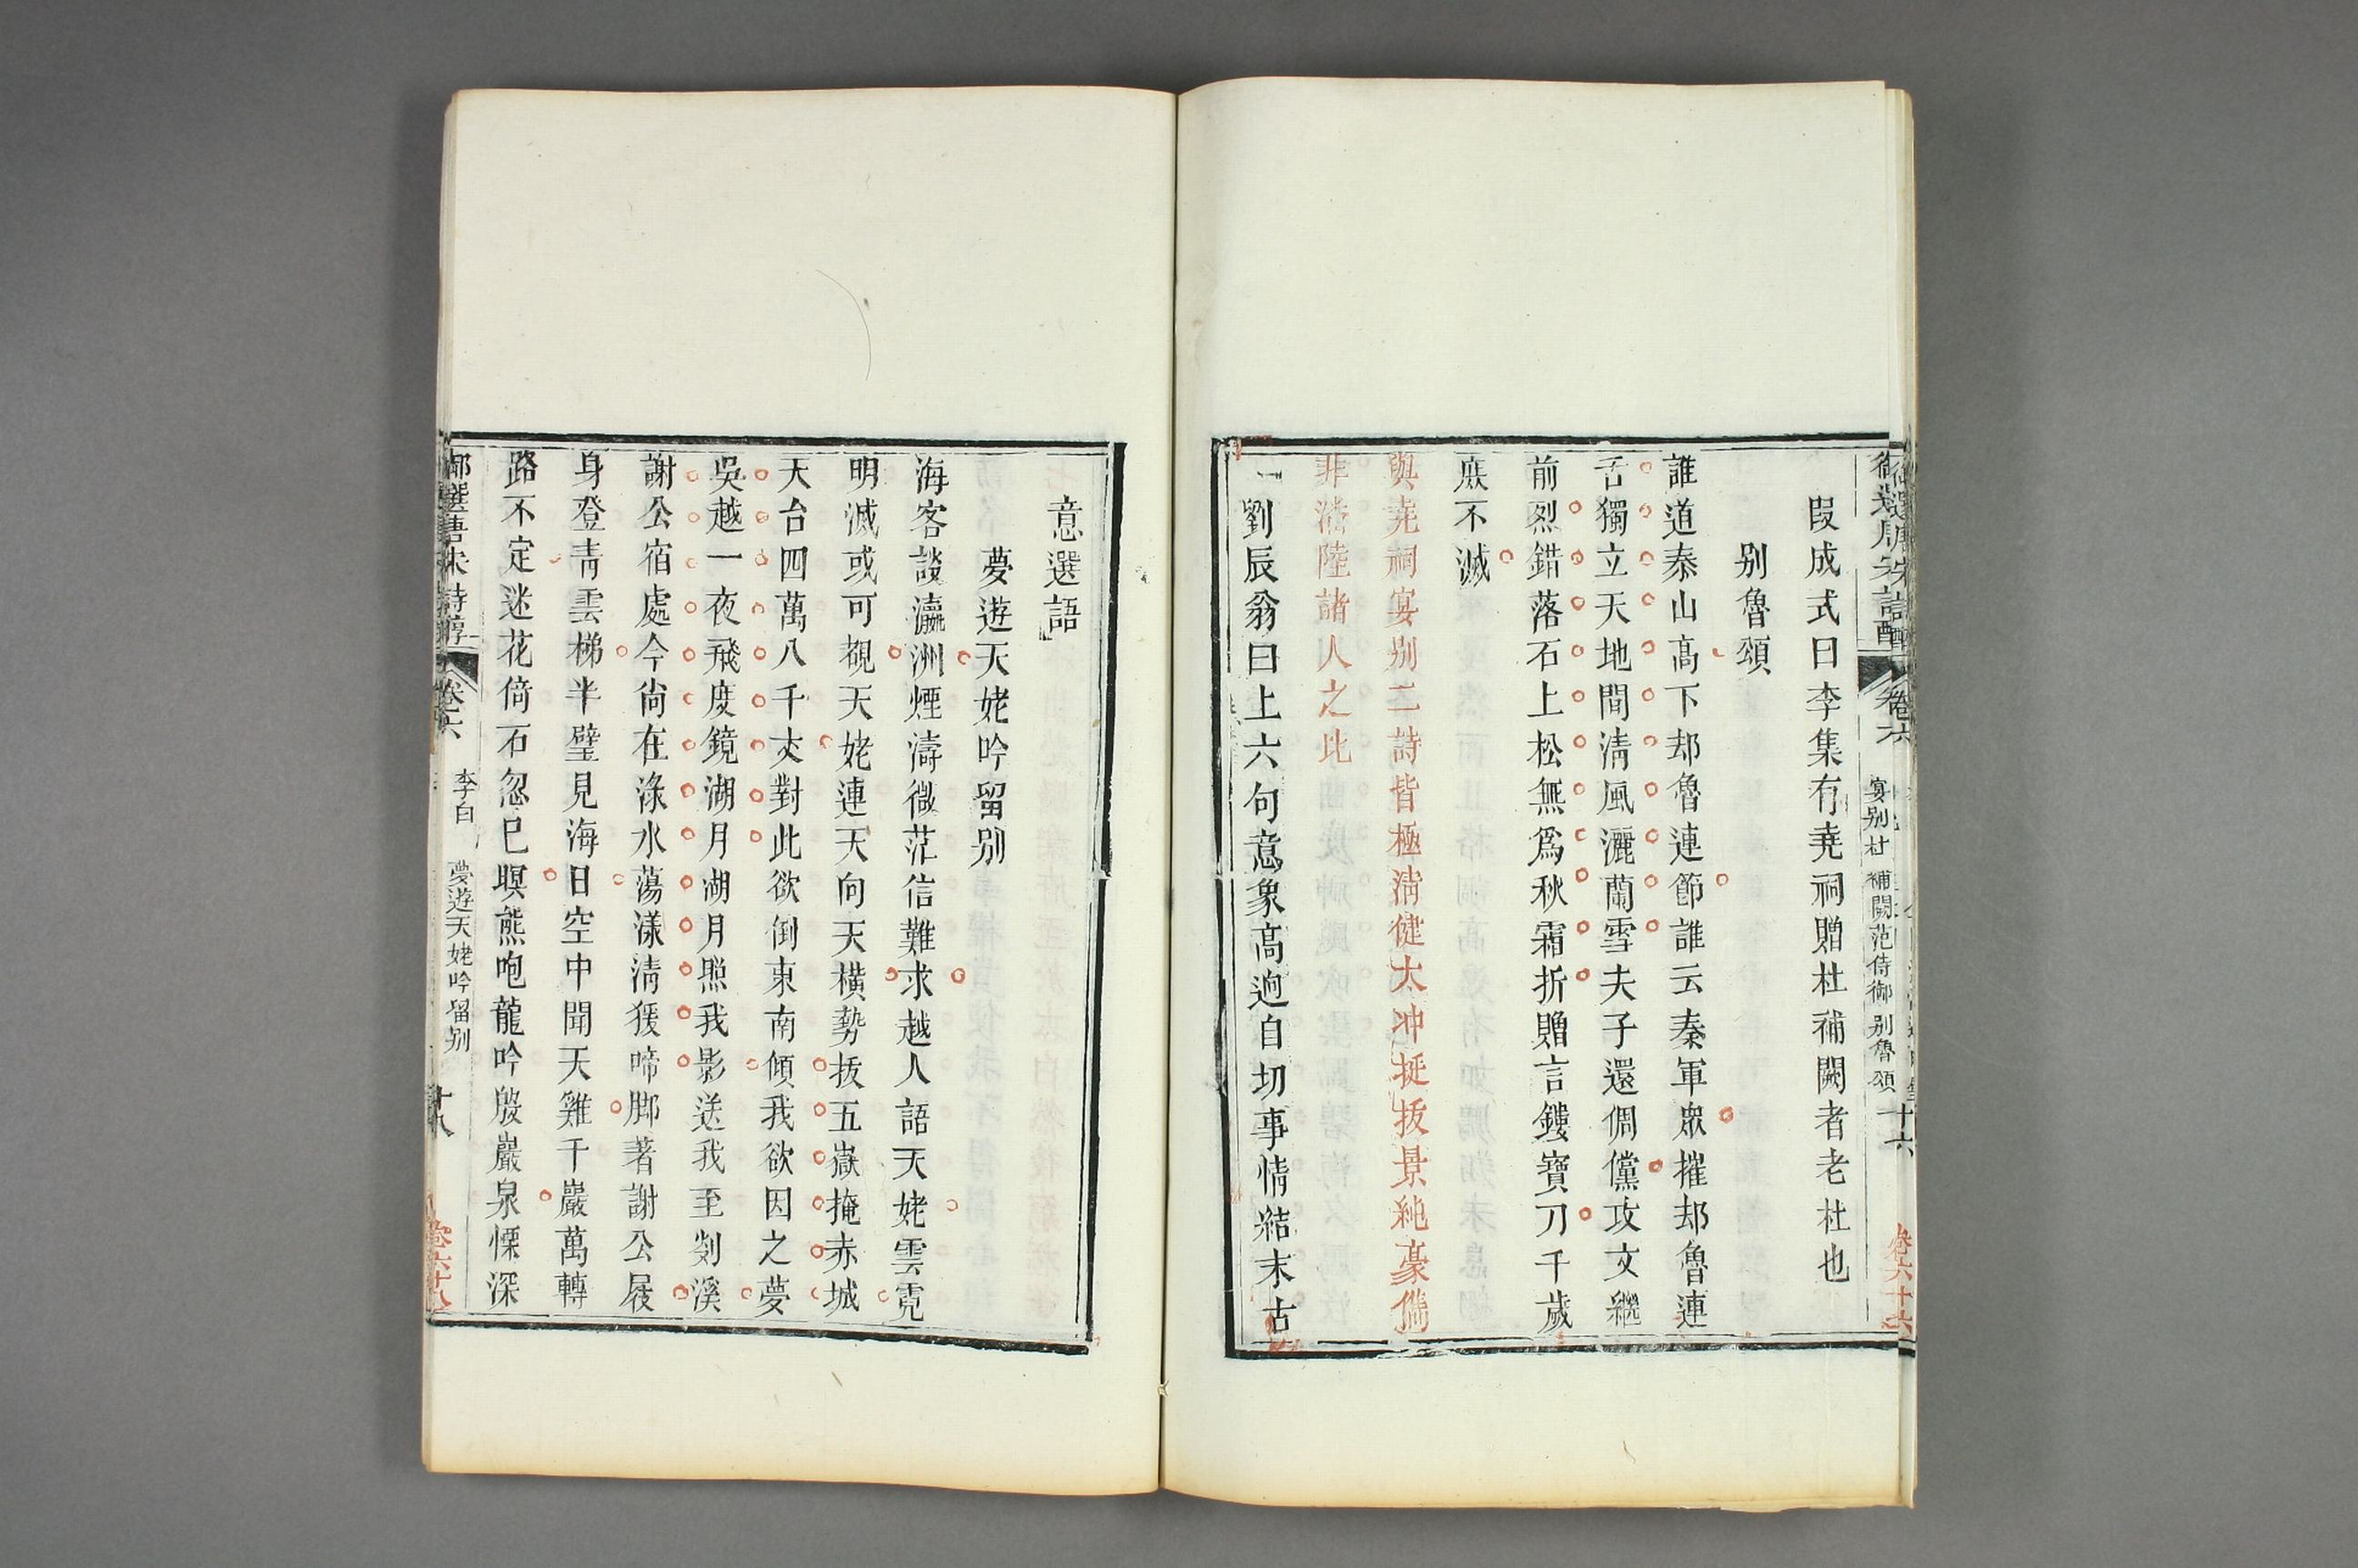 御選唐宋詩醇 卷六 宴别杜補闕范侍御 别魯頌 十六
卷六十六
叚成式曰李集有堯祠贈杜補闕者老杜也
别魯頌
誰道泰山高下却魯連節誰云秦軍衆摧却魯連
舌獨立天地間清風灑蘭雪夫子還倜儻攻文繼
前烈錯落石上松無爲秋霜折贈言鏤寶刀千歲
庶不滅
與堯祠宴别二詩皆極淸健太冲挺拔景純豪儁
非潘陸諸人之比
劉辰翁曰上六句意象高逈自切事情結末古
意選語
夢遊天姥吟留别
海客談瀛洲煙濤微茫信難求越人語天姥雲霓
明滅或可覩天姥連天向天橫勢拔五嶽掩赤城
天台四萬八千丈對此欲倒東南傾我欲因之夢
吳越一夜飛度鏡湖月湖月照我影送我至剡溪
謝公宿處今尙在淥水蕩漾淸猨啼脚著謝公屐
身登靑雲梯半壁見海日空中聞天雞千巖萬轉
路不定迷花倚石忽已暝熊咆龍吟殷巖泉慄深
御選唐宋詩醇 卷六 李白 夢遊天姥吟留别 十八
卷六十八